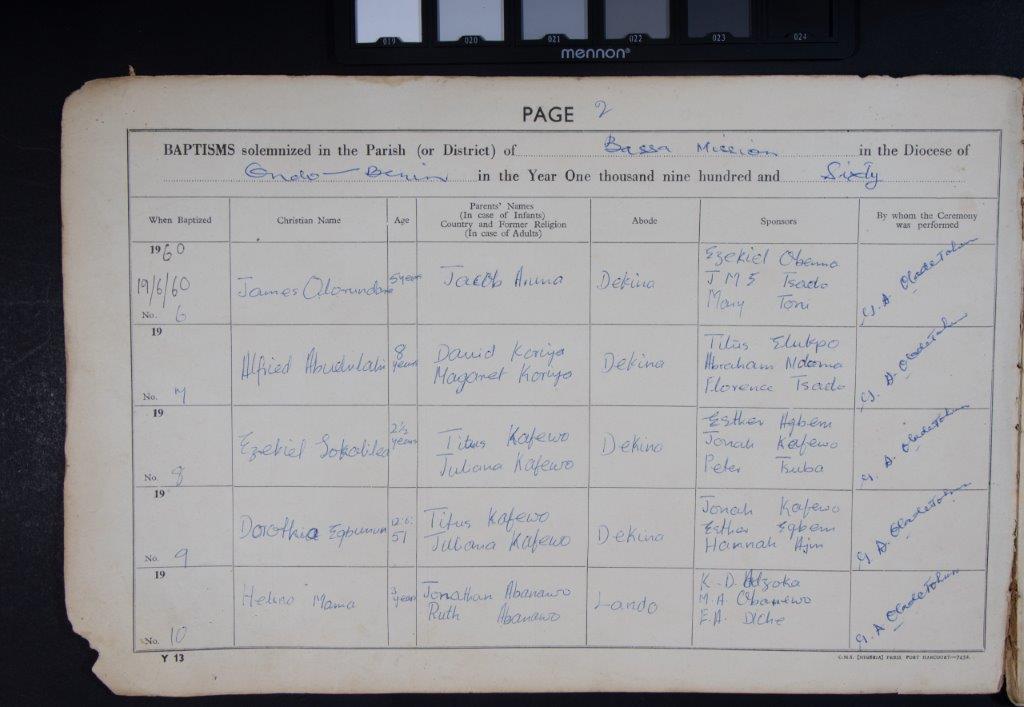 019 020 021 022 023 024
mennon®
PAGE 2
BAPTISMS solemnized in the Parish (or District) of Bassa Mission in the Diocese of
Ondo-Benin in the Year One thousand nine hundred and Sixty
When Baptized
Christian Name
Age
Parents' Names
(In case of Infants)
Country and Former Religion
(In case of Adults)
Abode
Sponsors
By whom the Ceremony
was performed
1960
19/6/60
No. 6
James
5 years
Jacob Aruna
Dekina
Ezekiel
J M S Tsado
Mary Toni
G. A. Oladetohun
19
No. 7
Alfried
8
years
David Koriyo
Magaret Koriyo
Dekina
Titus Elukpo
Abraham Ndoma
Florence Tsado
G. A. Oladetohun
19
No. 8
Ezekiel
2½
years
Titus Kafewo
Juliana Kafewo
Dekina
Esther
Jonah Kafewo
Peter Tsuba
G. A. Oladetohun
19
No. 9
Dorothia
12:6:
51
Titus Kafewo
Juliana Kafewo
Dekina
Jonah Kafewo
Esther Egbem
Hannah
G. A. Oladetohun
19
No. 10
Mama
3
years
Jonathan Abanawo
Ruth Abanawo
Lando
K. D. Adzoka
M. A. Obanewo
E. A.
G. A. Oladetohun
Y 13
C.M.S. (NIGERIA) PRESS, PORT HARCOURT